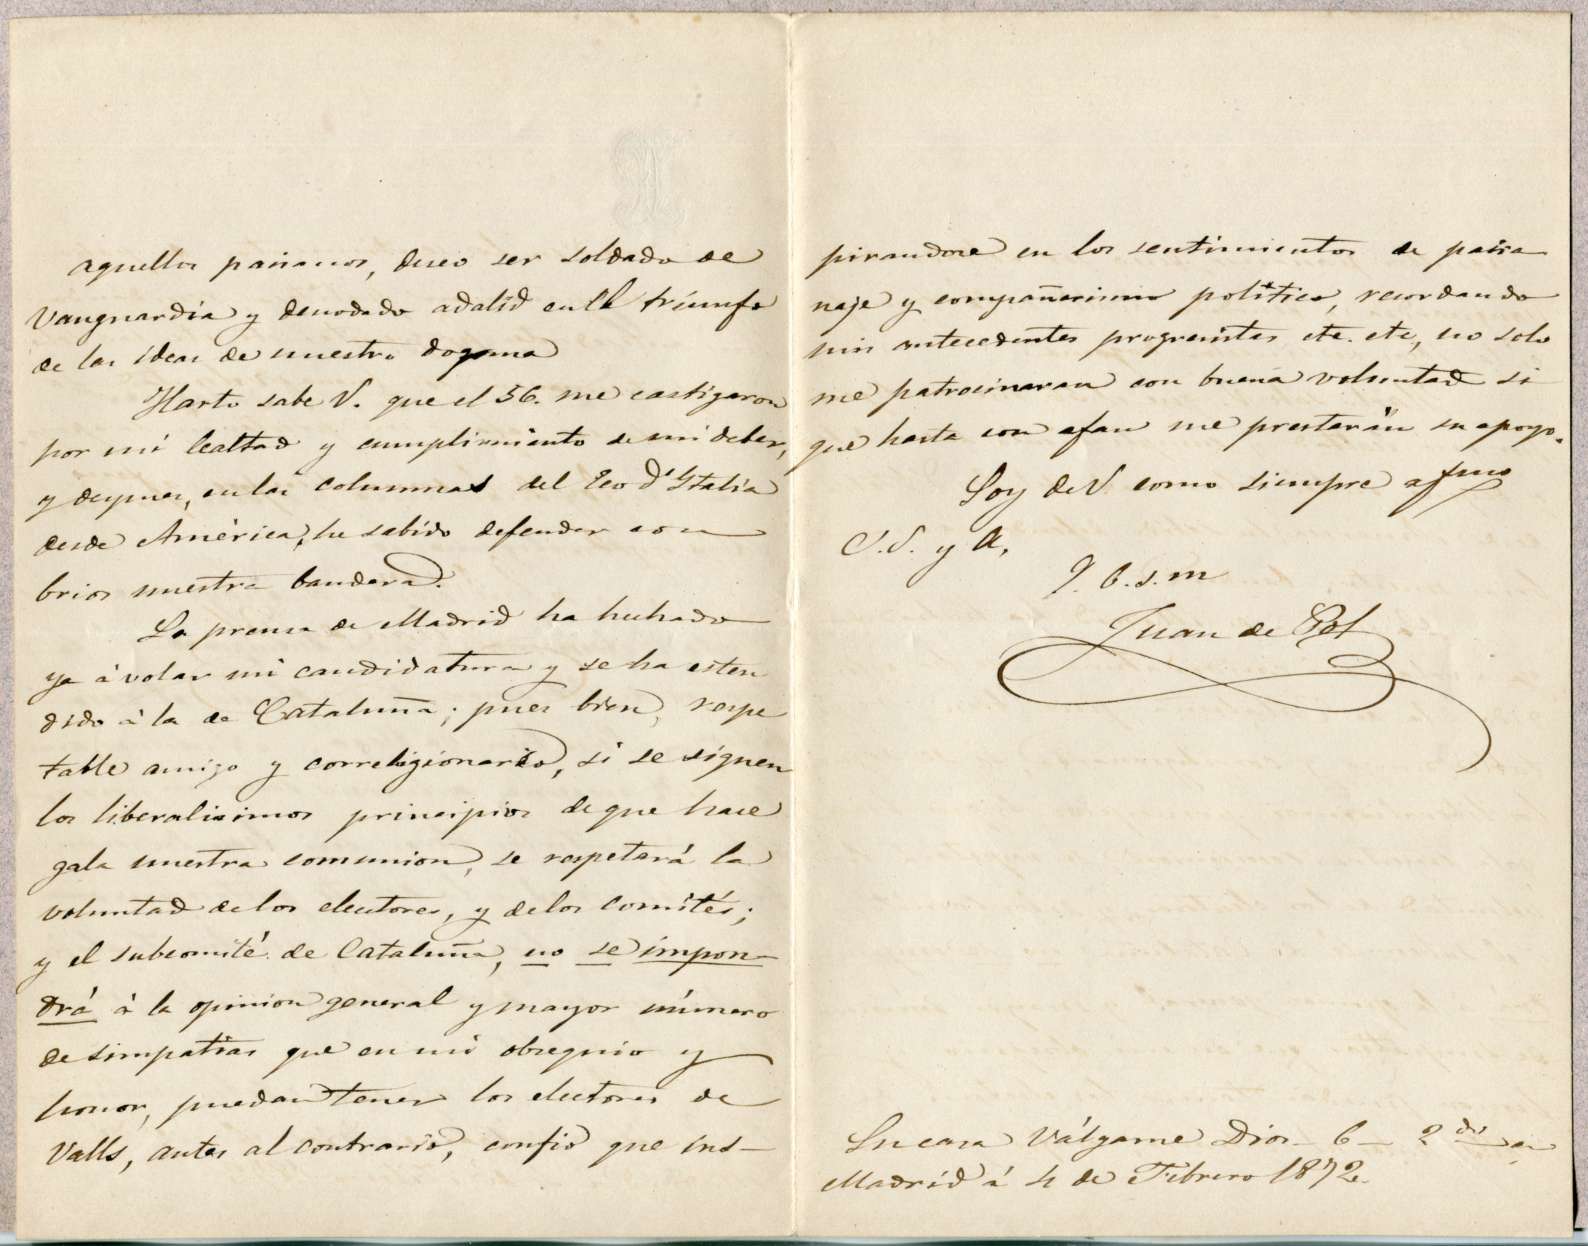 aquellos paisanos, deseo ser soldado de
vanguardia y denodado adalid en el triunfo
de las ideas de nuestro dogma
Harto sabe V. que el 56. me castigaron
por mi lealtad y cumplimiento de mi deber,
y despues, en las columnas del Eco d'Italia
desde América, he sabido defender con
brios nuestra bandera.
La prensa de Madrid ha hechado
ya á volar mi candidatura y se ha esten
dido á la de Cataluña; pues bien, respe
table amigo y correligionario, si se siguen
los liberalisimos principios de que hace
gala nuestra comunion, se respetará la
voluntad de los electores, y de los comités;
y el subcomité de Cataluña, no se impon-
drá á la opinion general y mayor número
de simpatias que en mi obsequio y
honor, puedan tener los electores de
Valls, antes al contrario, confio que ins-
pirandose en los sentimientos de paisa
naje y compañerismo politico, recordando
mis antecedentes progresistas etc. etc, no solo
me patrocinaran con buena voluntad si
que hasta con afan me prestarán su apoyo.
Soy de V. como siempre afmo
S.S. y A,
Q. b. s. m
Juan de Pol
Su casa Válgame Dios - 6 - 2º
Madrid á 4 de Febrero 1872.